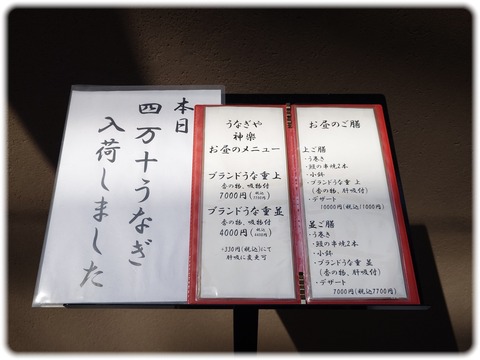 本日
四万十うなぎ
入荷しました
うなぎや
神楽
お昼のメニュー
ブランドうな重 上
香の物、吸物付
7000円(税込7700円)
ブランドうな重 並
香の物、吸物付
4000円(税込4400円)
+330円(税込)にて
肝吸に変更可
お昼のご膳
上ご膳
・う巻き
・鰻の串焼2本
・小鉢
・ブランドうな重 上
(香の物、肝吸付)
・デザート
10000円(税込11000円)
並ご膳
・う巻き
・鰻の串焼2本
・小鉢
・ブランドうな重 並
(香の物、肝吸付)
・デザート
7000円(税込7700円)